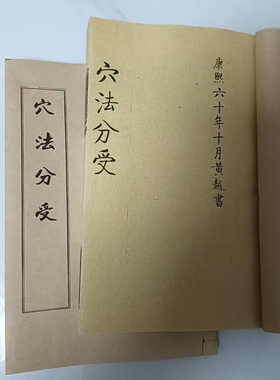 康熙六十年十月黄越書
穴法分受
穴法分受